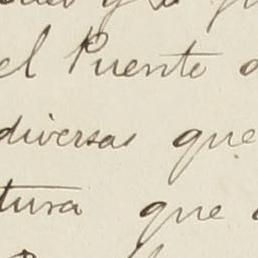 el Puente
diversas que
tura que